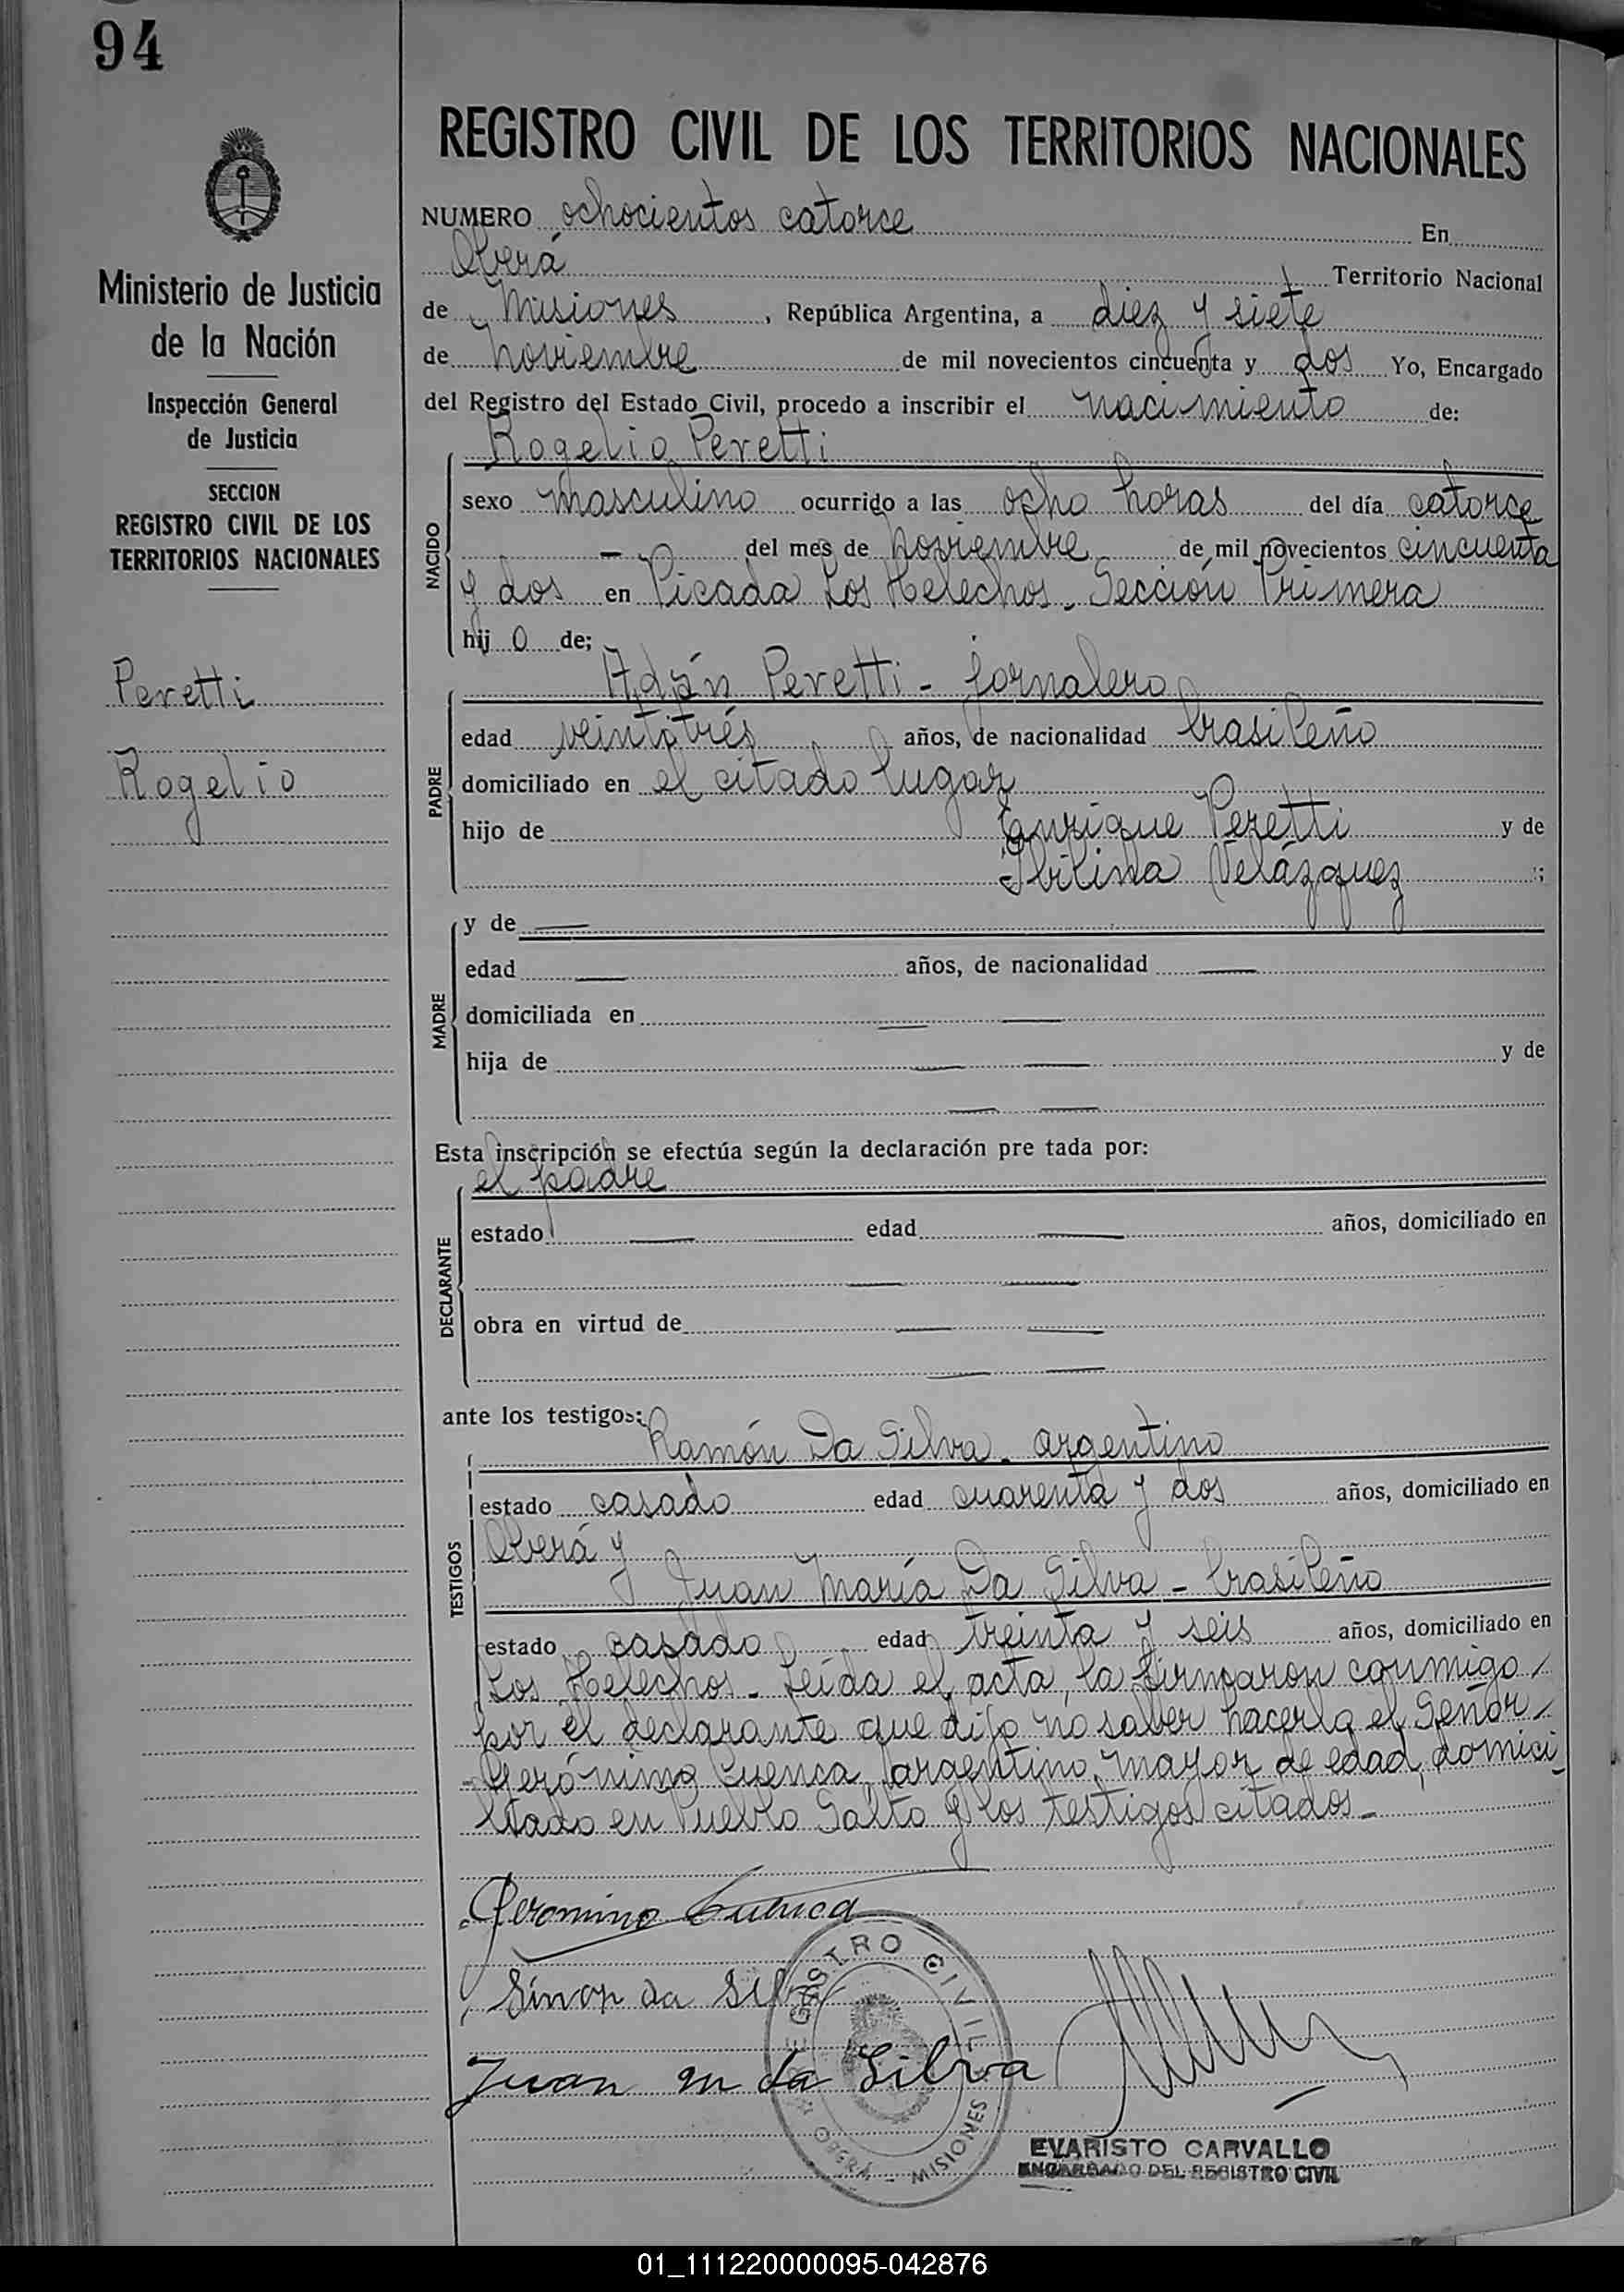 94
REGISTRO CIVIL DE LOS TERRITORIOS NACIONALES
Ministerio de Justicia
de la Nación
Inspección General
de Justicia
SECCION
REGISTRO CIVIL DE LOS
TERRITORIOS NACIONALES
Peretti
Rogelio
NUMERO ochocientos catorce En
Oberá Territorio Nacional
de Misiones, República Argentina, a diez y siete
de noviembre de mil novecientos cincuenta y dos Yo, Encargado
del Registro del Estado Civil, procedo a inscribir el nacimiento de:
Rogelio Peretti
NACIDO
sexo masculino ocurrido a las ocho horas del día catorce
— del mes de noviembre de mil novecientos cincuenta
y dos en Picada Los Helechos. Sección Primera
hij o de;
PADRE
Adán Peretti - jornalero
edad veintitrés años, de nacionalidad brasileño
domiciliado en el citado lugar
hijo de Enrique Peretti y de
Velázquez ;
MADRE
y de —
edad — años, de nacionalidad —
domiciliada en — —
hija de — — y de
— —
Esta inscripción se efectúa según la declaración pre tada por:
el padre
DECLARANTE
estado — edad — años, domiciliado en
— —
obra en virtud de — —
— —
ante los testigos:
TESTIGOS
Ramón Da Silva. argentino
estado casado edad cuarenta y dos años, domiciliado en
Oberá y
Juan María Da Silva - brasileño
estado casado edad treinta y seis años, domiciliado en
Los Helechos. Leída el acta, la firmaron conmigo
por el declarante que dijo no saber hacerlo el Señor
Gerónimo Cuenca, argentino, mayor de edad, domici
liado en Pueblo Salto y los testigos citados.-
Geronimo Cuenca
da Silva
Juan m da Silva
REGISTRO CIVIL
OBERÁ - MISIONES
EVARISTO CARVALLO
ENCARGADO DEL REGISTRO CIVIL
01_111220000095-042876